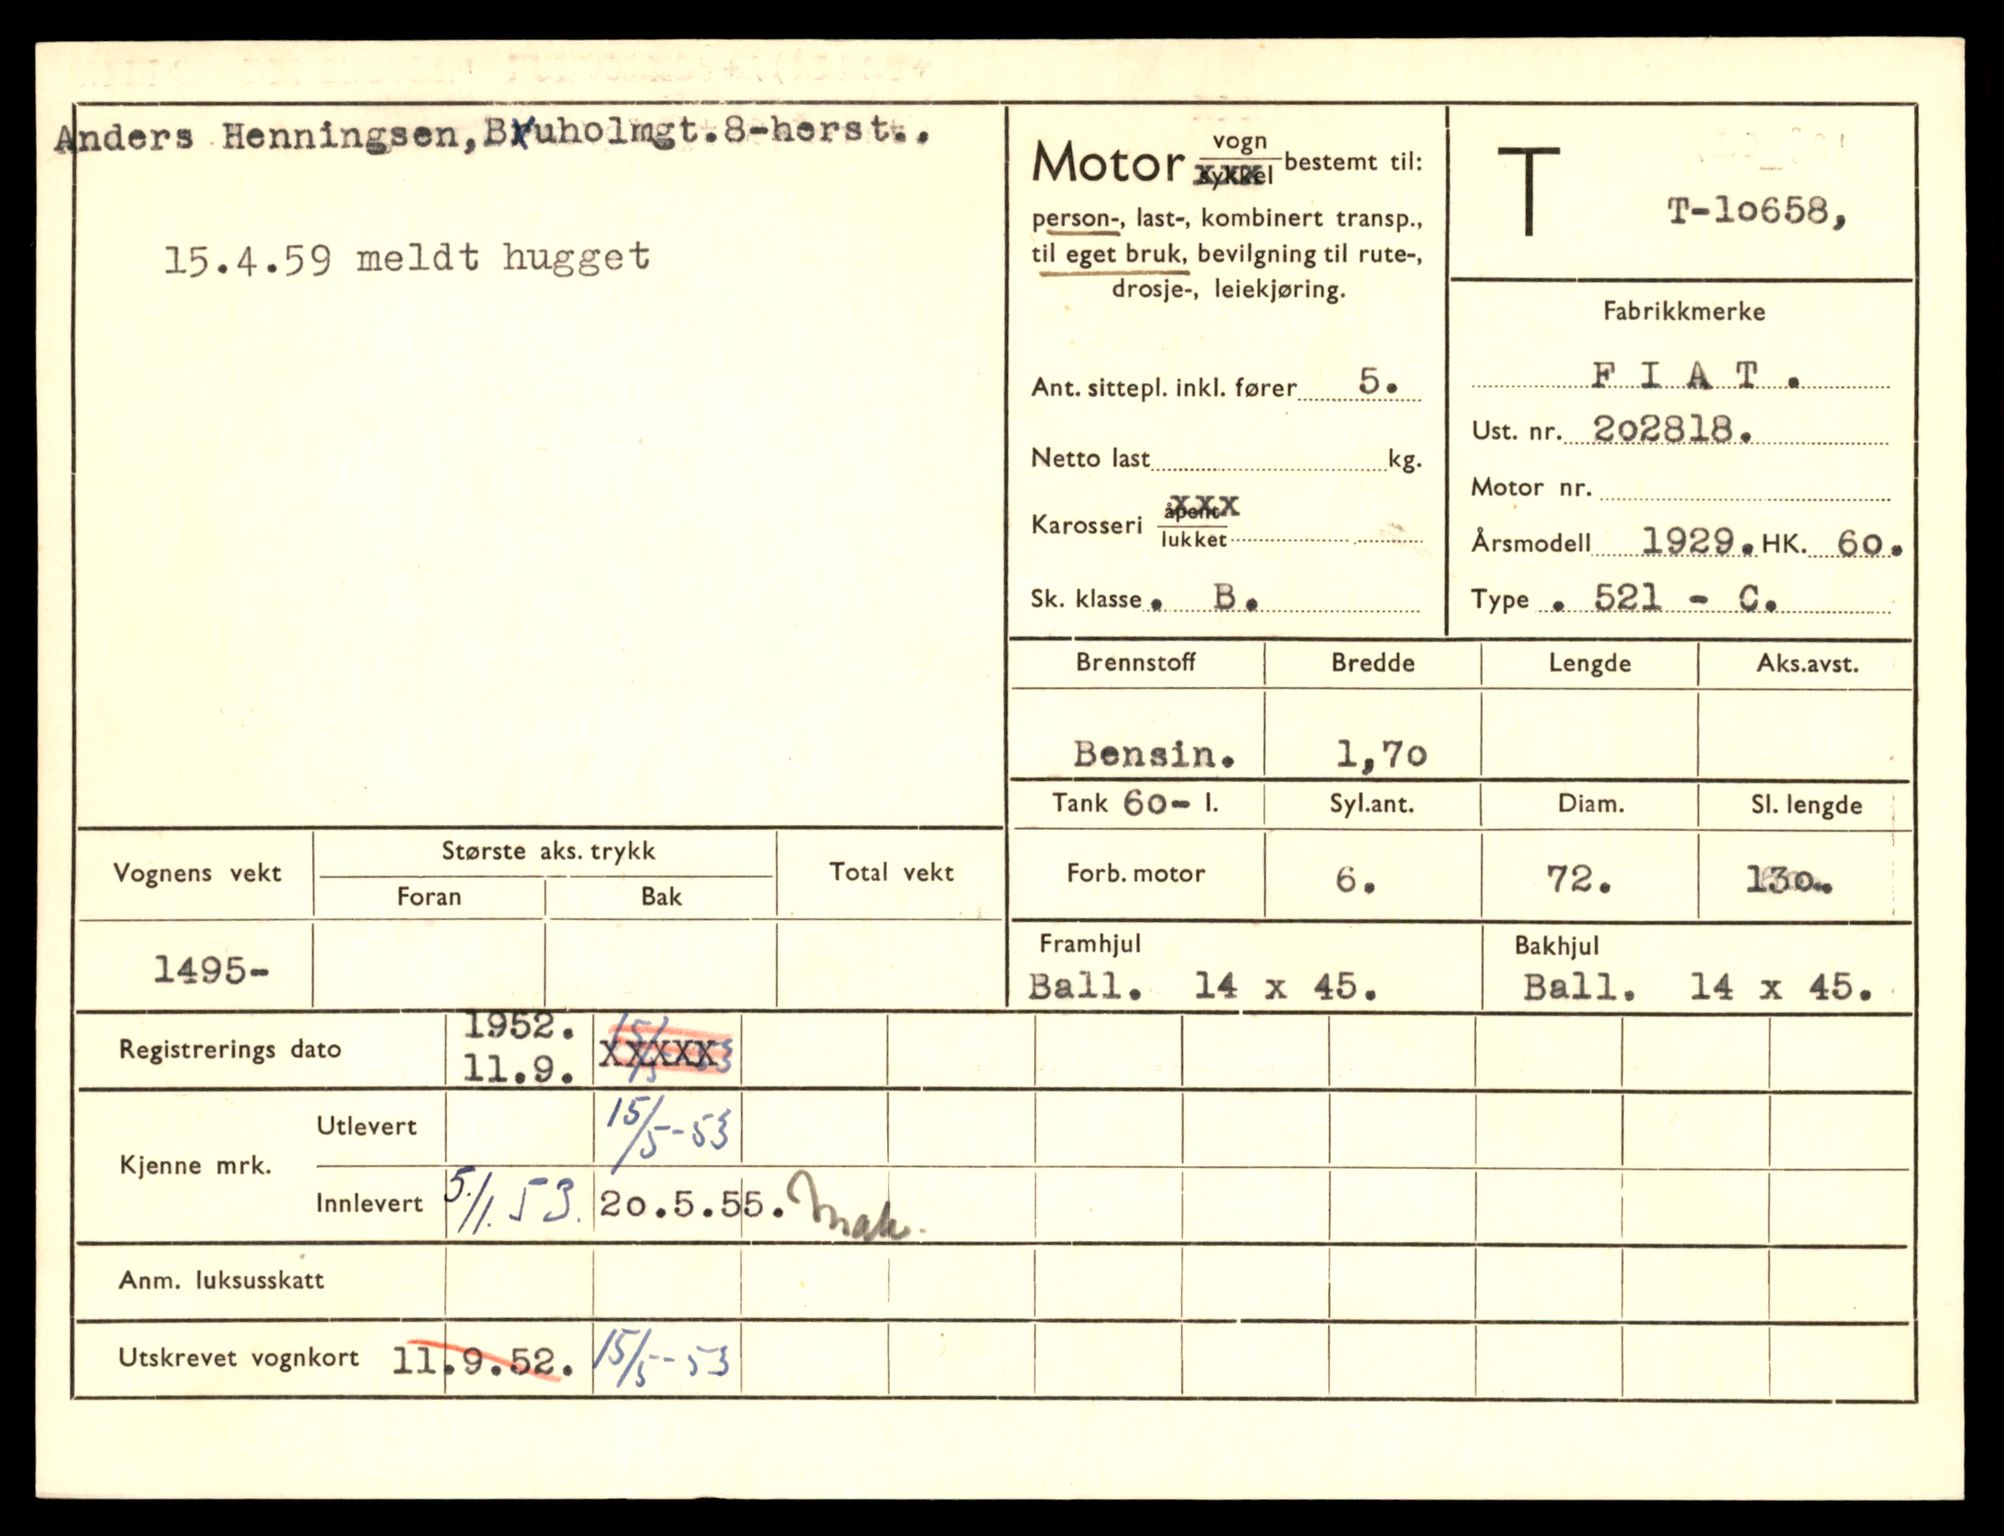 Anders Henningsen, Bruholmgt.8-herst..
15.4.59 meldt hugget
Motor vogn sykkel bestemt til:
person-, last-, kombinert transp.,
til eget bruk, bevilgning til rute-,
drosje-, leiekjøring.
Ant. sittepl. inkl. fører 5.
Netto last kg.
Karosseri åpent xxx
lukket
Sk. klasse. B.
T T-10658,
Fabrikkmerke
F I A T .
Ust. nr. 202818.
Motor nr.
Årsmodell 1929. HK. 60.
Type . 521 - C.
Brennstoff Bredde Lengde Aks.avst.
Bensin. 1,70
Tank 60- l. Syl.ant. Diam. Sl. lengde
Forb. motor 6. 72. 130.
Framhjul Bakhjul
Ball. 14 x 45. Ball. 14 x 45.
Vognens vekt Største aks. trykk Total vekt
Foran Bak
1495-
Registrerings dato 1952. 11.9. xxxxx
Kjenne mrk. Utlevert 15/5-53
Innlevert 5./1. 53. 20.5.55.
Anm. luksusskatt
Utskrevet vognkort 11.9.52. 15/5-53